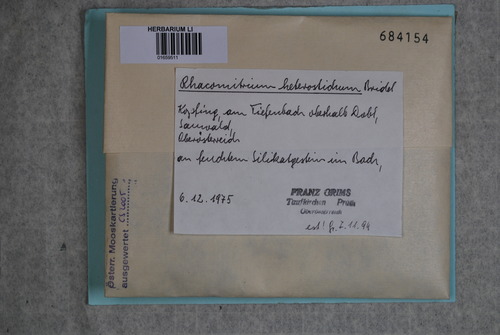 HERBARIUM LI
684154
Rhacomitrium heterostichum Bridel
Kopfing, am Tiefenbach oberhalb Dobl,
Sauwald,
Oberösterreich
an feuchtem Silikatgestein im Bach,
6.12.1975
FRANZ GRIMS
Taufkirchen Pram
Oberösterreich
est!
Österr. Mooskartierung
ausgewertet